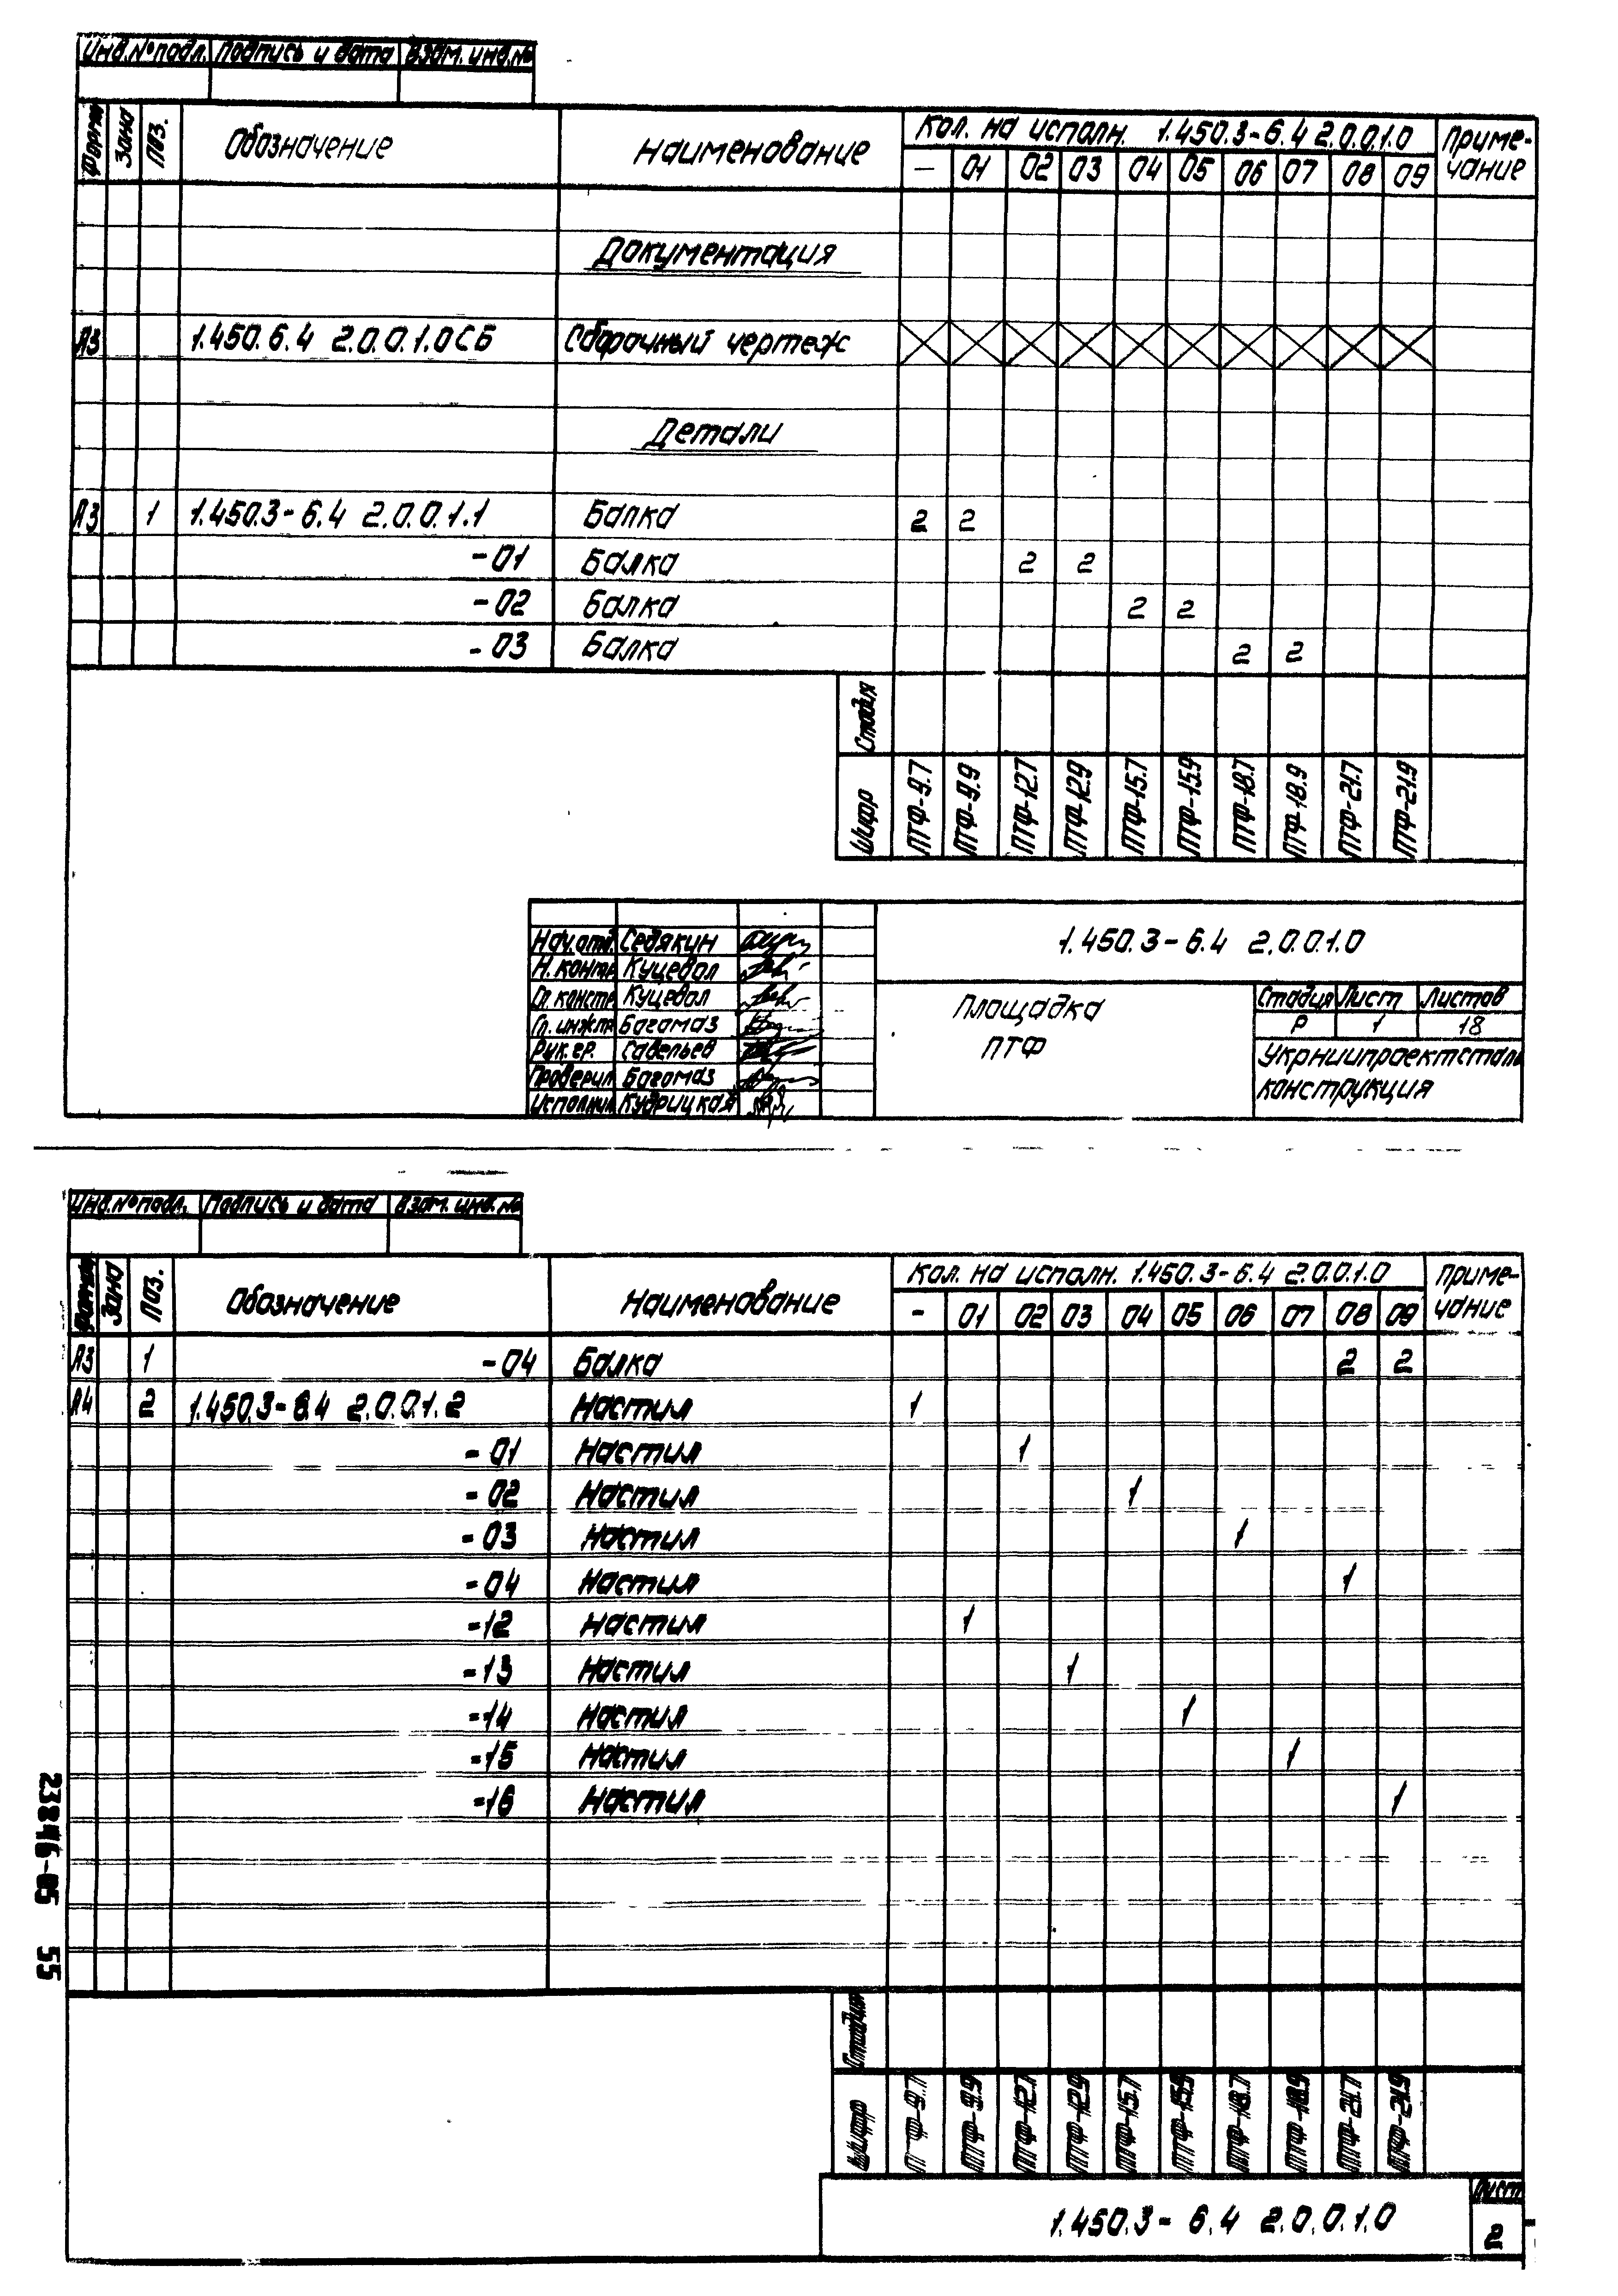 Инв.№подл. Подпись и дата Взам. инв.№
Формат Зона Поз. Обозначение Наименование Кол. на исполн. 1.450.3-6.4 2.0.0.1.0 Приме-
чание
— 01 02 03 04 05 06 07 08 09
Документация
А3 1.450.6.4 2.0.0.1.0СБ Сборочный чертеж
Детали
А3 1 1.450.3-6.4 2.0.0.1.1 Балка 2 2
-01 Балка 2 2
-02 Балка 2 2
-03 Балка 2 2
Стадия
Шифр ПТФ-9.7 ПТФ-9.9 ПТФ-12.7 ПТФ-12.9 ПТФ-15.7 ПТФ-15.9 ПТФ-18.7 ПТФ-18.9 ПТФ-21.7 ПТФ-21.9
1.450.3-6.4 2.0.0.1.0
Нач.отд. Седякин
Н. контр Куцевол
Гл. констр Куцевол
Гл. инж.пр Багомаз
Рук.гр. Савельев
Проверил Багомаз
Исполнил Кудрицкая
Площадка
ПТФ
Стадия Лист Листов
Р 1 18
Укрниипроектсталь
конструкция
Инв.№подл. Подпись и дата Взам. инв.№
Формат Зона Поз. Обозначение Наименование Кол. на исполн. 1.450.3-6.4 2.0.0.1.0 Приме-
чание
- 01 02 03 04 05 06 07 08 09
А3 1 -04 Балка 2 2
А4 2 1.450.3-6.4 2.0.0.1.2 Настил 1
-01 Настил 1
-02 Настил 1
-03 Настил 1
-04 Настил 1
-12 Настил 1
-13 Настил 1
-14 Настил 1
-15 Настил 1
-16 Настил 1
Стадия
Шифр ПТФ-9.7 ПТФ-9.9 ПТФ-12.7 ПТФ-12.9 ПТФ-15.7 ПТФ-15.9 ПТФ-18.7 ПТФ-18.9 ПТФ-21.7 ПТФ-21.9
1.450.3-6.4 2.0.0.1.0
Лист
2
23846-05 55